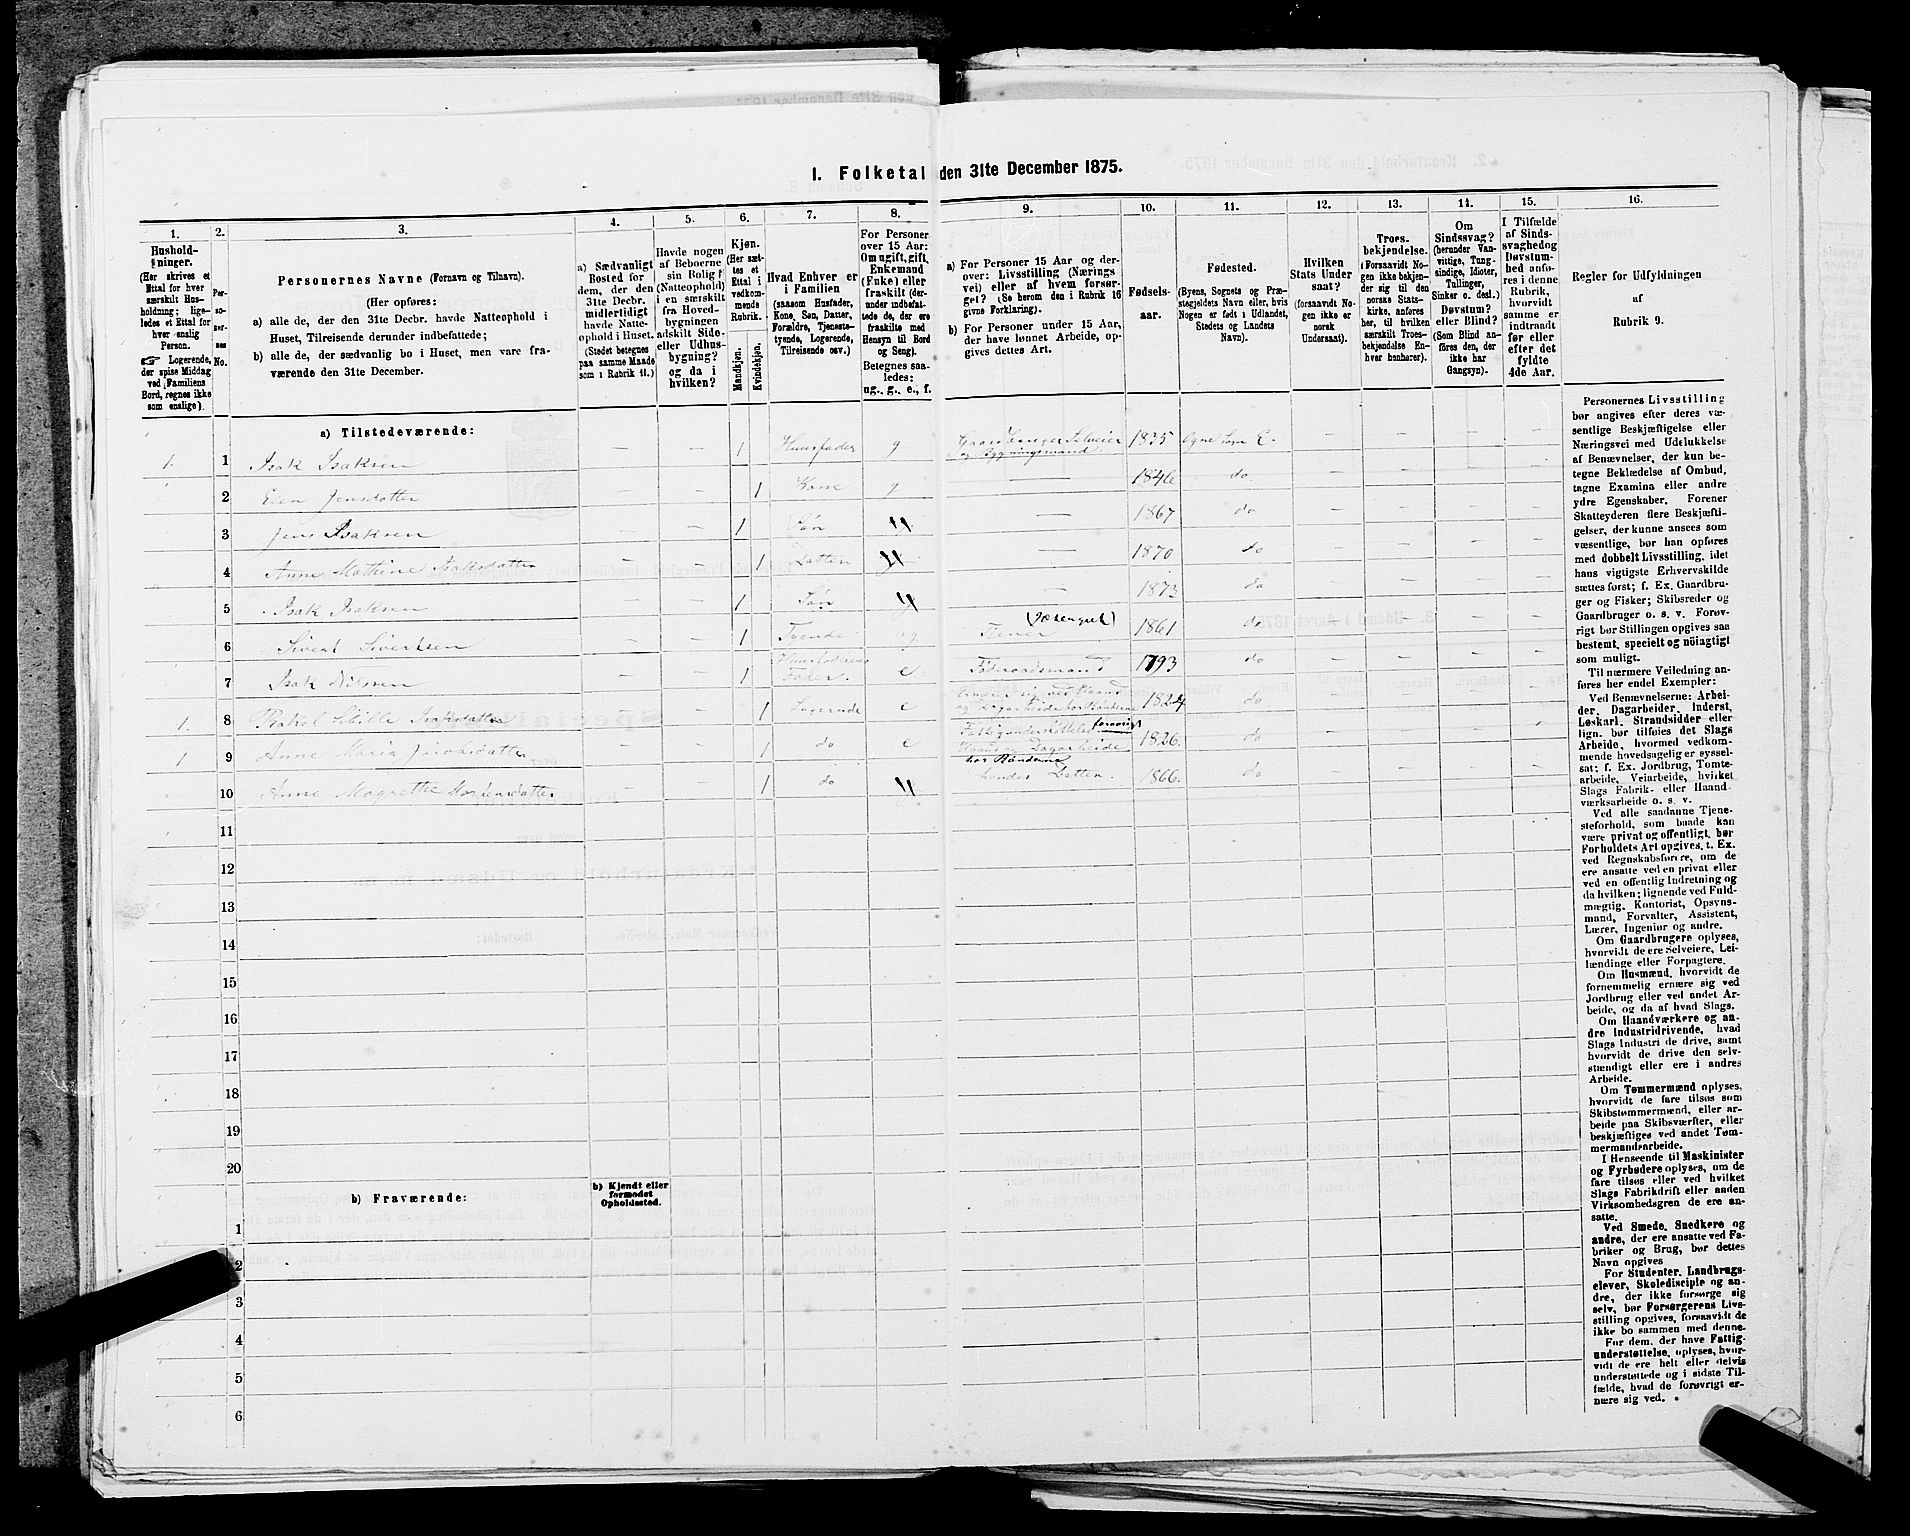 1. Folketal den 31te December 1875.
1.
Hushold-
ninger.
(Her skrives et
Ettal for hver
særskilt Hus-
holdning; lige-
ledes et Ettal for
hver enslig
Person.
☞ Logerende,
der spise Middag
ved Familiens
Bord, regnes ikke
som enslige).
2.
Per-
so-
ner-
nes
No.
3.
Personernes Navne (Fornavn og Tilnavn).
(Her opføres:
a) alle de, der den 31te Decbr. havde Natteophold i
Huset, Tilreisende derunder indbefattede;
b) alle de, der sædvanlig bo i Huset, men vare fra-
værende den 31te December.
4.
a) Sædvanligt
Bosted for
dem, der den
31te Decbr.
midlertidigt
havde Natte-
ophold i Huset.
(Stedet betegnes
paa samme Maade
som i Rubrik 11.)
5.
Havde nogen
af Beboerne
sin Bolig
(Natteophold)
i en særskilt
fra Hoved-
bygningen
adskilt Side-
eller Udhus-
bygning?
og da i
hvilken?
6.
Kjøn.
(Her sæt-
tes et
Ettal i
vedkom-
mende
Rubrik.
Mandkjøn.
Kvindekjøn.
7.
Hvad Enhver er
i Familien
(saasom Husfader,
Kone, Søn, Datter,
Forældre, Tjeneste-
tyende, Logerende,
Tilreisende osv.)
8.
For Personer
over 15 Aar:
Om ugift, gift,
Enkemand
(Enke) eller
fraskilt (der-
under indbefat-
tede de, der ere
fraskilte med
Hensyn til Bord
og Seng).
Betegnes saa-
ledes:
ug., g., e., f.
9.
a) For Personer 15 Aar og der-
over: Livsstilling (Nærings
vei) eller af hvem forsør-
get? (Se herom den i Rubrik 16
givne Forklaring).
b) For Personer under 15 Aar,
der have lønnet Arbeide, op-
gives dettes Art.
10.
Fødsels-
aar.
11.
Fødested.
(Byens, Sognets og Præ-
stegjeldets Navn eller, hvis
Nogen er født i Udlandet,
Stedets og Landets
Navn).
12.
Hvilken
Stats Under
saat?
(forsaavidt No-
gen ikke er
norsk
Undersaat).
13.
Troes-
bekjendelse.
(Forsaavidt No-
gen ikke bekjen-
der sig til den
norske Stats-
kirke, anføres
her, til hvilken
særskilt Troes-
bekjendelse En-
hver henhører).
14.
Om
Sindssvag?
(herunder Van-
vittige, Tung-
sindige, Idioter,
Tullinger,
Sinker o. desl.)
Døvstum?
eller Blind?
(Som Blind an-
føres den, der
ikke har
Gangsyn).
15.
I Tilfælde
af Sinds-
svaghedog
Døvstum-
hed anfø-
res i denne
Rubrik,
hvorvidt
samme er
indtraadt
før eller
efter det
fyldte
4de Aar.
16.
Regler for Udfyldningen
af
Rubrik 9.
a) Tilstedeværende:
1. 1 Isak Isaksen — — 1 Huusfader g Gaardbruger Selveier og Bygningsmand 1835 Ogne Sogn E. — — — —
2 Elen Jensdatter — — 1 Kone g — 1846 do — — — —
3 Jens Isaksen — — 1 Søn — 1867 do — — — —
4 Anne Mathine Isaksdatter — — 1 Datter — 1870 do — — — —
5 Isak Isaksen — — 1 Søn — 1873 do — — — —
6 Sivert Sivertsen — — 1 Tyende Tiener 1861 do — — — —
7 Isak Nilssen — — 1 Huusfaderens Fader. e Føderaadsmand 1793 do — — — —
1. 8 Rakel Sibille Isaksdatter — — 1 Logerende e 1824 do — — — —
1 9 Anne Maria Jacobsdatter — — 1 do e Fattigunderstøttelse forøvrigt Dagarbeide hos Bønderne 1826. do — — — —
10 Anne Magrethe — — 1 do hendes Datter. 1866. do — — — —
11
12
13
14
15
16
17
18
19
20
b) Fraværende:
b) Kjendt eller
formodet
Opholdssted.
1
2
3
4
5
6
Personernes Livsstilling
bør angives efter deres væ-
sentlige Beskjæftigelse eller
Næringsvei med Udelukkelse
af Benævnelser, der kun be-
tegne Beklædelse af Ombud,
tagne Examina eller andre
ydre Egenskaber. Forener
Skatteyderen flere Beskjæfti-
gelser, der kunne ansees som
væsentlige, bør han opføres
med dobbelt Livsstilling, idet
hans vigtigste Erhvervskilde
sættes først; f. Ex. Gaardbru-
ger og Fisker; Skibsreder og
Gaardbruger o. s. v. Forøv-
rigt bør Stillingen opgives saa
bestemt, specielt og nöiagtigt
som muligt.
Til nærmere Veiledning an-
føres her endel Exempler:
Ved Benævnelserne: Arbei-
der, Dagarbeider, Inderst,
Løskarl, Strandsidder eller
lign. bør tilføies det Slags
Arbeide, hvormed vedkom-
mende hovedsagelig er syssel-
sat; f. Ex. Jordbrug, Tomte-
arbeide, Veiarbeide, hvilket
Slags Fabrik- eller Haand-
værksarbeide o. s. v.
Ved alle saadanne Tjene-
steforhold, som baade kan
være privat og offentligt, bør
Forholdets Art opgives, t. Ex.
ved Regnskabsførere, om de
ere ansatte ved en privat eller
ved en offentlig Indretning og
da hvilken; lignende ved Fuld-
mægtig, Kontorist, Opsyns-
mand, Forvalter, Assistent,
Lærer, Ingeniør og andre.
Om Gaardbrugere oplyses,
hvorvidt de ere Selveiere, Lei-
lændinge eller Forpagtere.
Om Husmænd, hvorvidt de
fornemmelig ernære sig ved
Jordbrug eller ved andet Ar-
beide, og da af hvad Slags.
Om Haandværkere og an-
dre Industridrivende, hvad
Slags Industri de drive, samt
hvorvidt de drive den selv-
stændigt eller ere i andres
Arbeide.
Om Tømmermænd oplyses,
hvorvidt de fare tilsøs som
Skibstømmermænd, eller ar-
beide paa Skibsværfter, eller
beskjæftiges ved andet Tøm-
mermandsarbeide.
I Henseende til Maskinister
og Fyrbødere oplyses, om de
fare tilsøs eller ved hvilket
Slags Fabrikdrift eller anden
Virksomhedsgren de ere an-
satte.
Ved Smede, Snedkere og
andre, der ere ansatte ved Fa-
briker og Brug, bør dettes
Navn opgives
For Studenter, Landbrugs-
elever, Skoledisciple og an-
dre, der ikke forsørge sig
selv, bør Forsørgerens Livs-
stilling opgives, forsaavidt de
ikke bo sammen med denne.
For dem, der have Fattig-
understøttelse, oplyses, hvor-
vidt de ere helt eller delvis
understøttede og i sidste Til-
fælde, hvad de forøvrigt er-
nære sig ved.